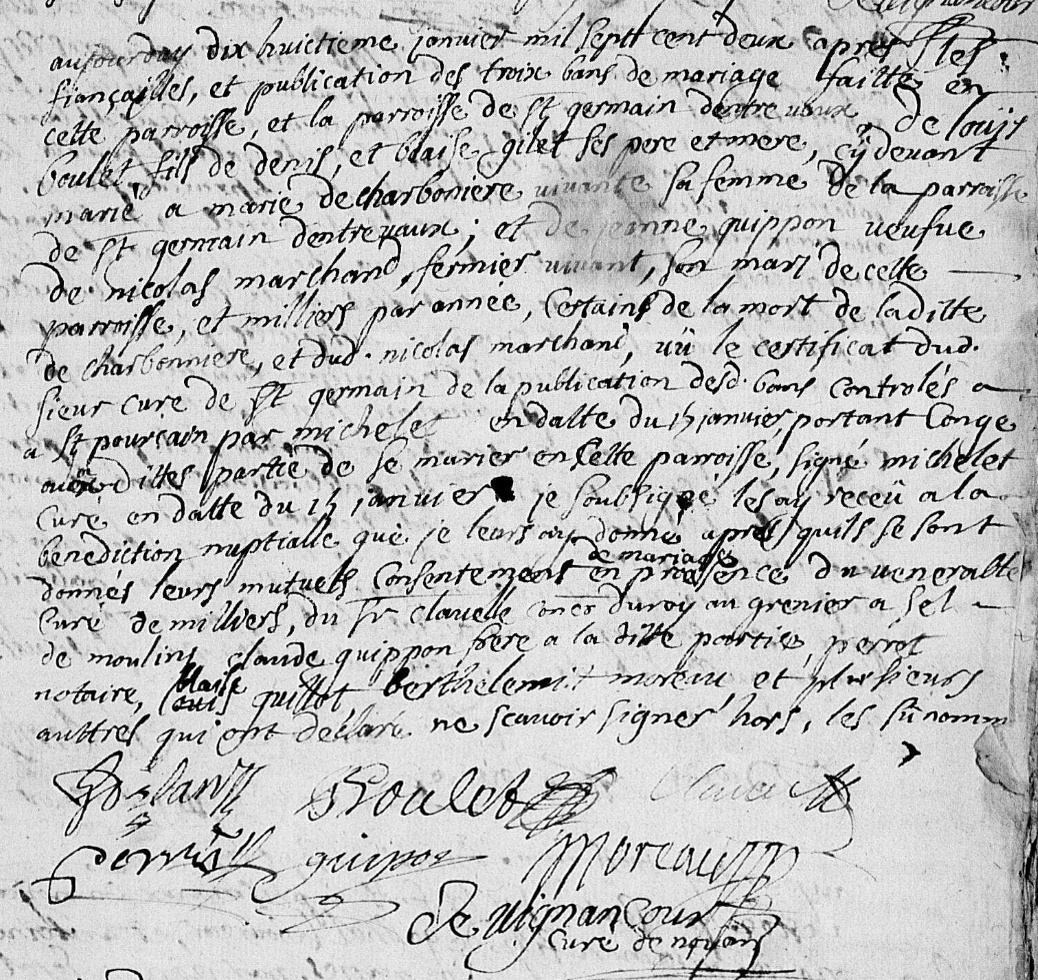 aujourday dix huictieme janvier mil sept cent deux apres les
fiançailles, et publication des troix bans de mariage faitte en
cette parroisse, et la parroisse de St germain dentrevaux de louys
boulet fils de denis, et blaise gilet ses pere et mere, cy devant
marié a marie de charboniere vivante sa femme de la parroisse
de St germain dentrevaux; et de jeanne quippon veufve
de nicolas marchand, fermier vivant, son mary de celle
parroisse, et milliers par année, Certains de la mort de laditte
de charbonniere, et dud. nicolas marchand, vü le certificat dud.
sieur curé de St germain de la publication desd. bans controlés a
a St pourcain par michelet en datte du 15 janvier, portant Conge
dittes partie de se marier en Cette parroisse, signé michelet
Curé en datte du 15 janvier je soubsigné les ay receü a la
benediction nuptialle que je leurs ay donné apres quils se sont
donnés leurs mutuels Consentement de mariage en presence du venerable
Curé de milliers, du Sr clavelle duroy au grenier a sel
de moulins, claude quippon frere a la ditte partie, perrot
notaire, blaise quillot, berthelemit moreau, et plusieurs
auttres qui ont declaré ne scavoir signer hors, les sunomm
Boulet
quipon Moreau
De Vignancour
Curé de noyan